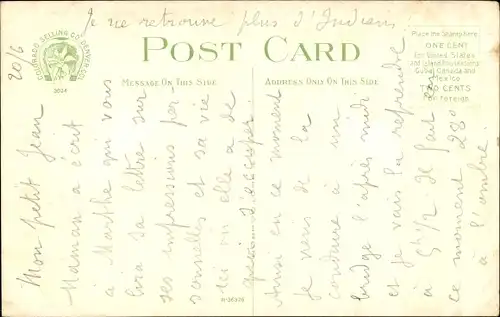 Je ne retrouve plus d'Indiens
COLORADO SELLING CO. DENVER COLO.
3024
POST CARD
MESSAGE ON THIS SIDE
ADDRESS ONLY ON THIS SIDE
Place the Stamp here
ONE CENT
for United States
and Island Possessions
Cuba, Canada and
Mexico
TWO CENTS
For Foreign
20/6
Mon petit Jean
Maman a écrit
à Marthe qui vous
lira sa lettre sur
ses impressions per-
sonnelles et sa vie
ici où elle a de
quoi s'occuper.
Ainsi en ce moment
je viens de la
conduire à un
bridge l'après midi
et je vais la reprendre
à 5h 1/2. Il fait en
ce moment 28°
à l'ombre.